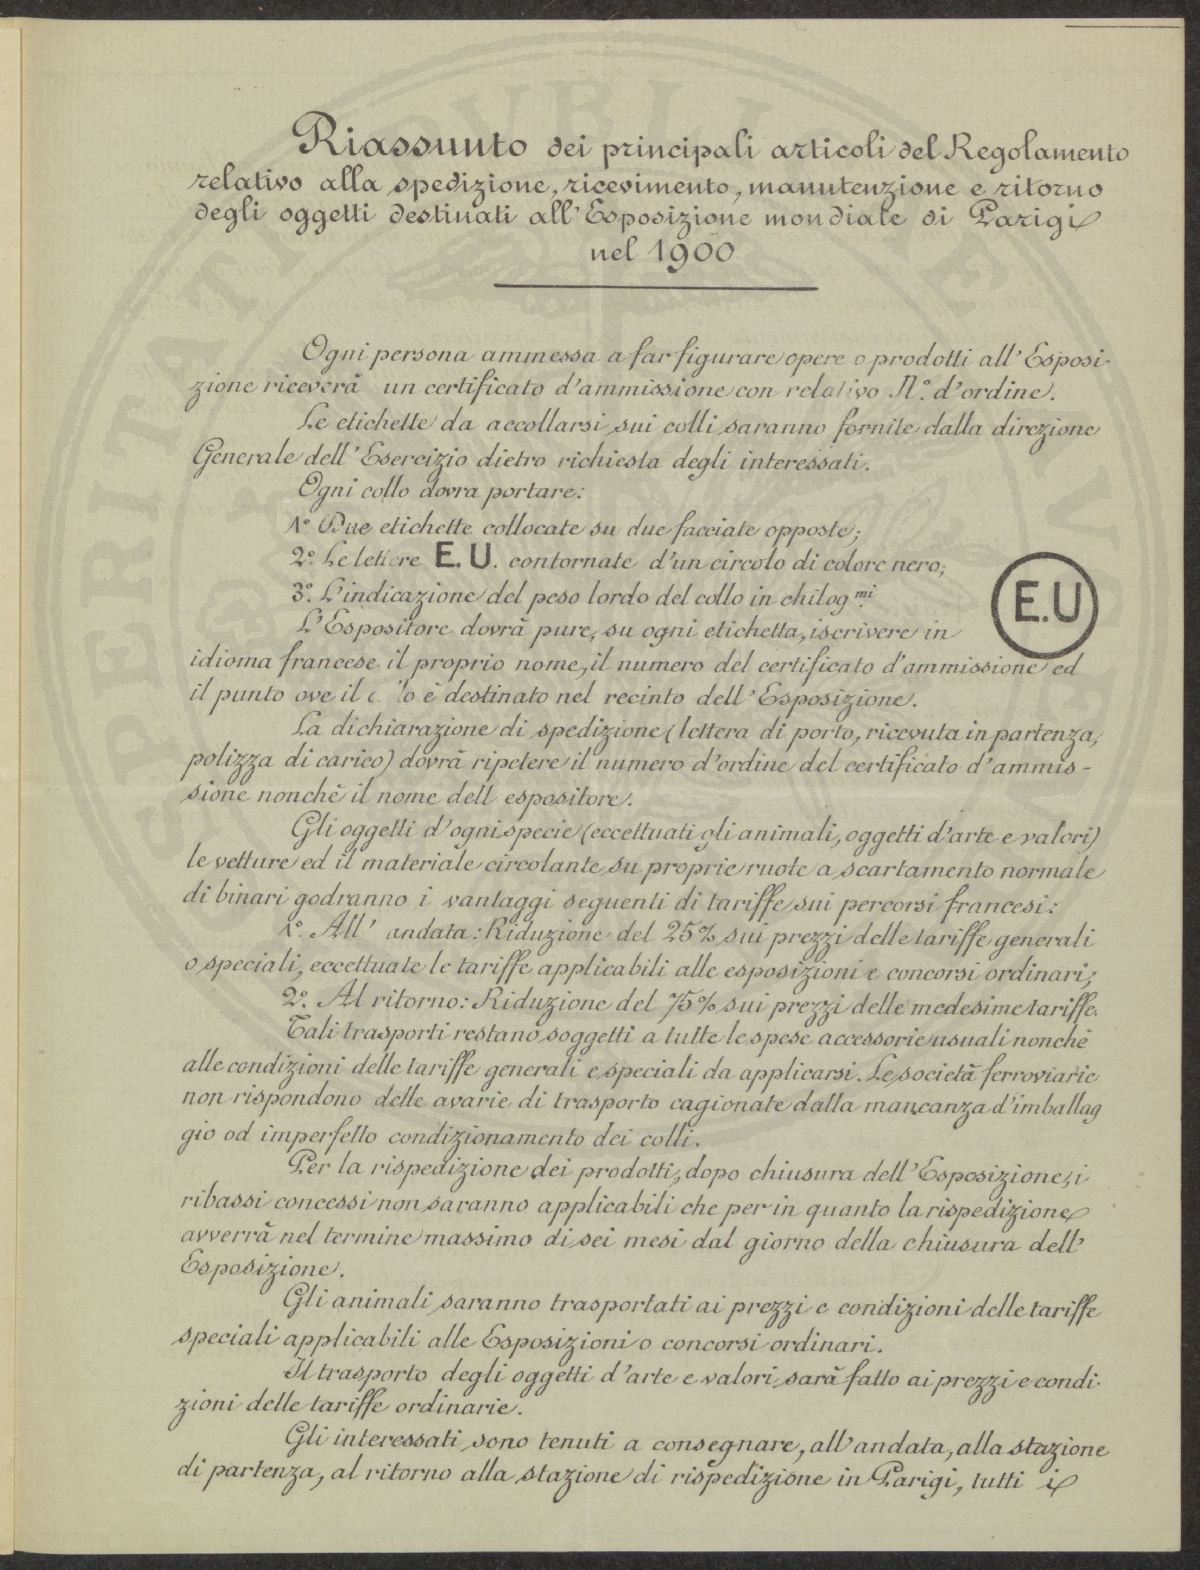 Riassunto dei principali articoli del Regolamento
relativo alla spedizione, ricevimento, manutenzione e ritorno
degli oggetti destinati all'Esposizione mondiale di Parigi
nel 1900
Ogni persona ammessa a far figurare opere o prodotti all'Esposi-
zione riceverà un certificato d'ammissione con relativo N.° d'ordine.
Le etichette da accollarsi sui colli saranno fornite dalla direzione
Generale dell'Esercizio dietro richiesta degli interessati.
Ogni collo dovra portare:
1° Due etichette collocate su due facciate opposte;
2° Le lettere E.U. contornate d'un circolo di colore nero;
3° L'indicazione del peso lordo del collo in chilog.mi
E.U
L'Espositore dovrà pure, su ogni etichetta, iscrivere in
idioma francese il proprio nome, il numero del certificato d'ammissione ed
il punto ove il c lo è destinato nel recinto dell'Esposizione.
La dichiarazione di spedizione (lettera di porto, ricevuta in partenza,
polizza di carico) dovrà ripetere il numero d'ordine del certificato d'ammis-
sione nonchè il nome dell espositore.
Gli oggetti d'ogni specie (eccettuati gli animali, oggetti d'arte e valori)
le vetture ed il materiale circolante su proprie ruote a scartamento normale
di binari godranno i vantaggi seguenti di tariffe sui percorsi francesi:
1° All' andata: Riduzione del 25% sui prezzi delle tariffe generali
o speciali, eccettuate le tariffe applicabili alle esposizioni e concorsi ordinari;
2° Al ritorno: Riduzione del 75% sui prezzi delle medesime tariffe.
Tali trasporti restano soggetti a tutte le spese accessorie usuali nonchè
alle condizioni delle tariffe generali e speciali da applicarsi. Le società ferroviarie
non rispondono delle avarie di trasporto cagionate dalla mancanza d'imballag
gio od imperfetto condizionamento dei colli.
Per la rispedizione dei prodotti, dopo chiusura dell'Esposizione, i
ribassi concessi non saranno applicabili che per in quanto la rispedizione
avverrà nel termine massimo di sei mesi dal giorno della chiusura dell'
Esposizione.
Gli animali saranno trasportati ai prezzi e condizioni delle tariffe
speciali applicabili alle Esposizioni o concorsi ordinari.
Il trasporto degli oggetti d'arte e valori sarà fatto ai prezzi e condi-
zioni delle tariffe ordinarie.
Gli interessati sono tenuti a consegnare, all'andata, alla stazione
di partenza, al ritorno alla stazione di rispedizione in Parigi, tutti i